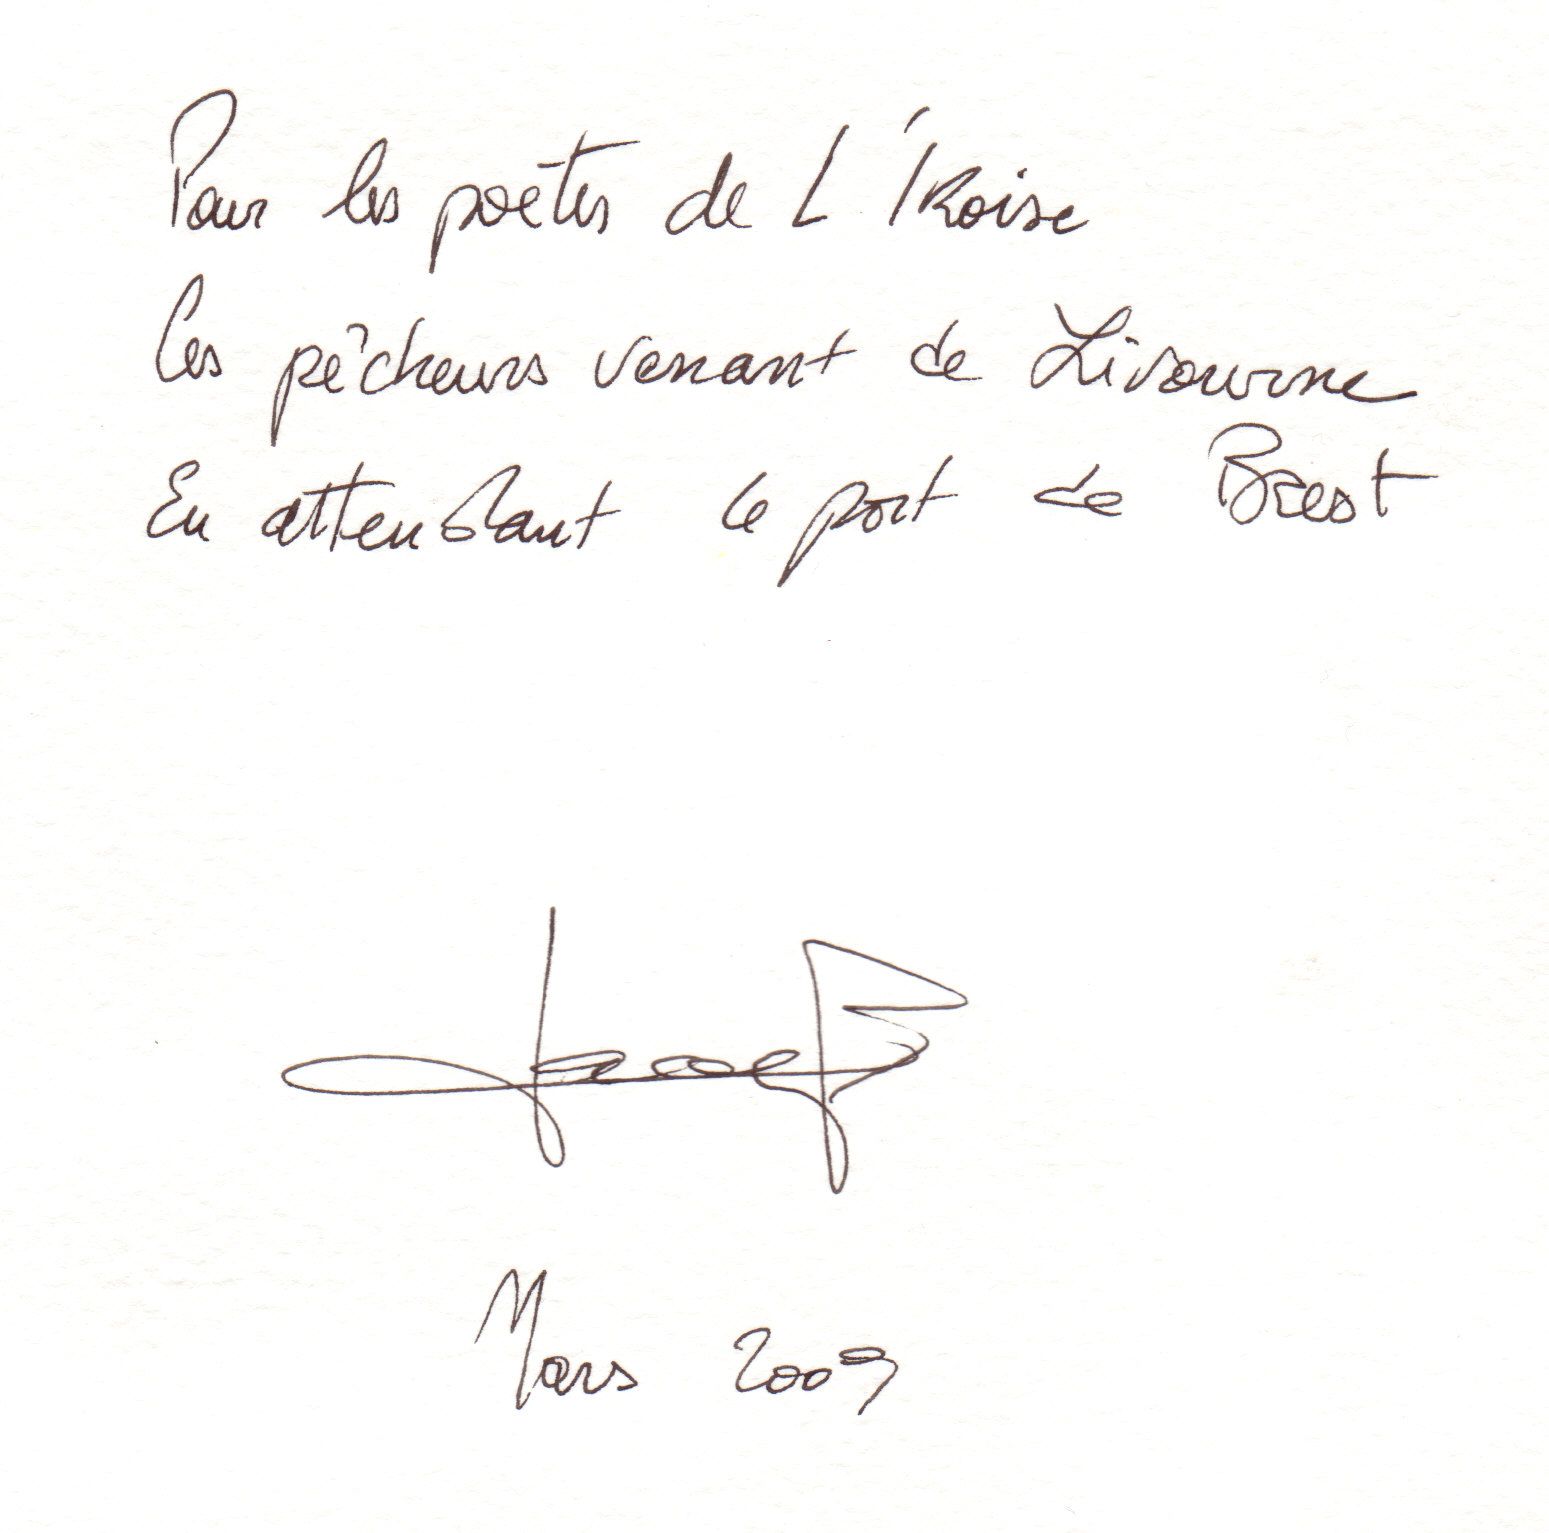 Pour les poètes de L'IRoise
Ces pêcheurs venant de Livourne
En attendant le port de Brest
Mars 2009